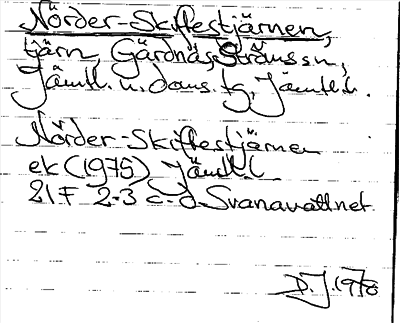 Nörder-Skiftestjärnen,
tjärn, Gärdnäs, Ströms sn,
Jämtl. n. doms. tg, Jämtl. l.
Nörder-Skiftestjärnen
ek (1975) Jämtl. l
21F 2-3 c-d Svanavattnet
D.J. 1978